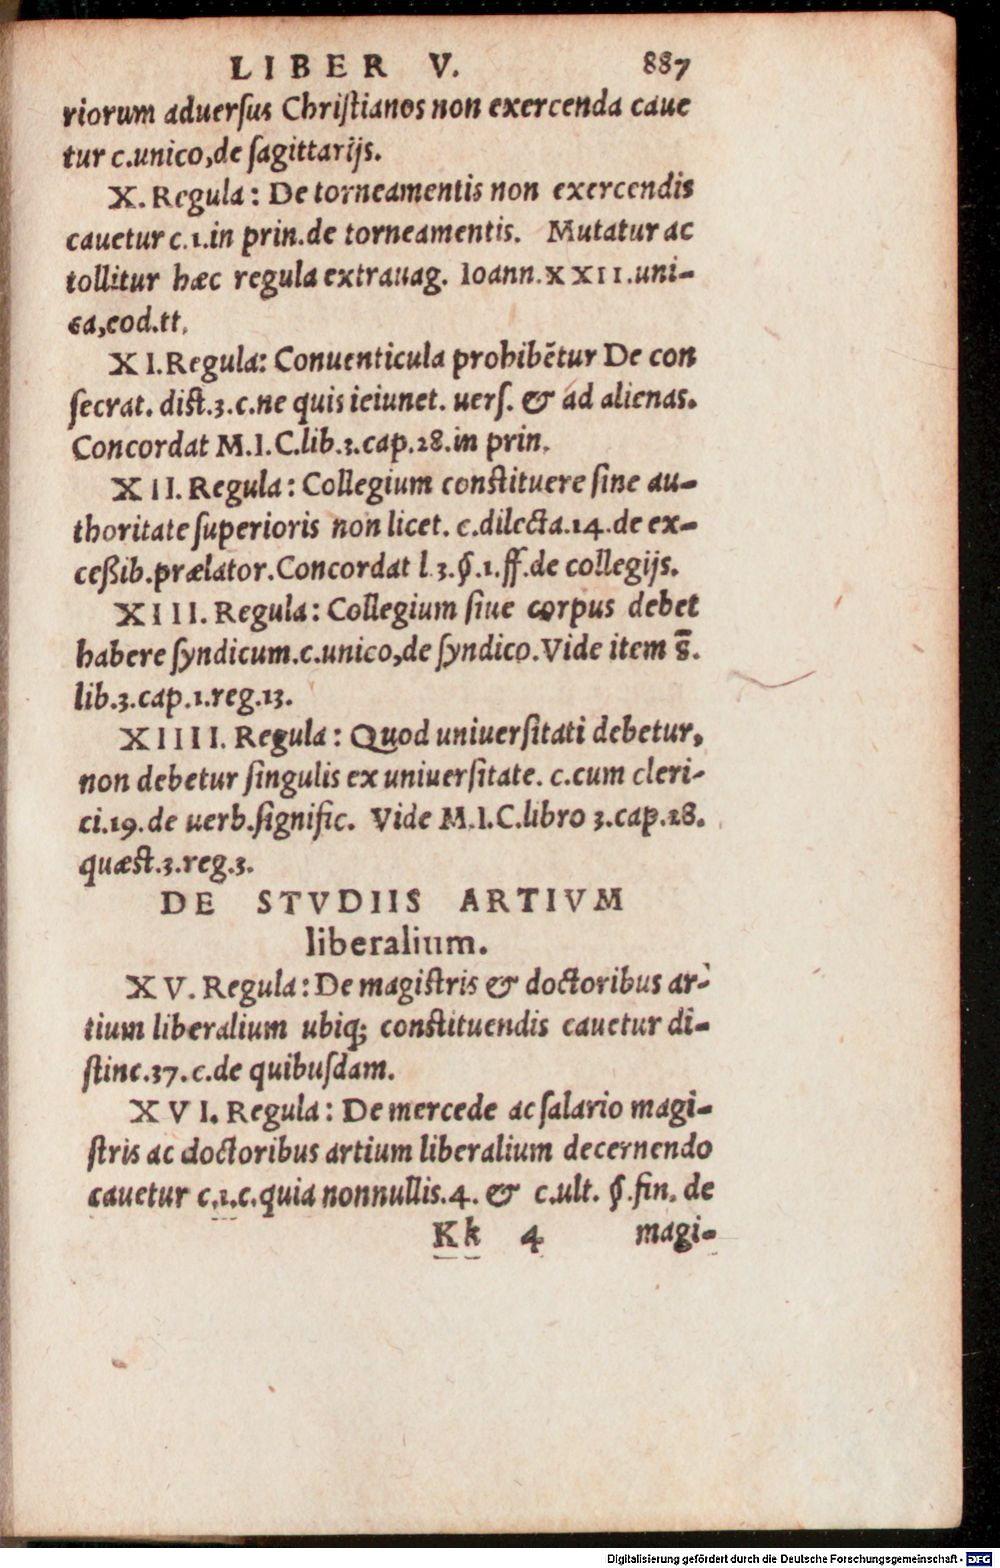 LIBER V. 887
riorum aduerſus Chriſtianos non exercenda caue
tur c.unico,de ſagittarijs.
X. Regula: De torneamentis non exercendis
cauetur c.1.in prin.de torneamentis. Mutatur ac
tollitur hæc regula extrauag. Ioann.XXII.uni-
ca,eod.tt.
XI.Regula: Conuenticula prohibētur De con
ſecrat. diſt.3.c.ne quis ieiunet. uerſ. & ad alienas.
Concordat M.I.C.lib.3.cap.28.in prin.
XII. Regula: Collegium conſtituere ſine au-
thoritate ſuperioris non licet. c.dilecta.14.de ex-
ceßib.prælator.Concordat l.3.§.1.ff.de collegijs.
XIII. Regula: Collegium ſiue corpus debet
habere ſyndicum.c.unico,de ſyndico.Vide item s̄.
lib.3.cap.1.reg.13.
XIIII. Regula: Quod uniuerſitati debetur,
non debetur ſingulis ex uniuerſitate. c.cum cleri-
ci.19.de uerb.ſignific. Vide M.I.C.libro 3.cap.28.
quæst.3.reg.3.
DE STVDIIS ARTIVM
liberalium.
XV. Regula: De magiſtris & doctoribus ar-
tium liberalium ubiq; conſtituendis cauetur di-
ſtinc.37.c.de quibuſdam.
XVI. Regula: De mercede ac ſalario magi-
ſtris ac doctoribus artium liberalium decernendo
cauetur c.1.c.quia nonnullis.4. & c.ult. §.fin. de
Kk 4 magi-
Digitalisierung gefördert durch die Deutsche Forschungsgemeinschaft - DFG